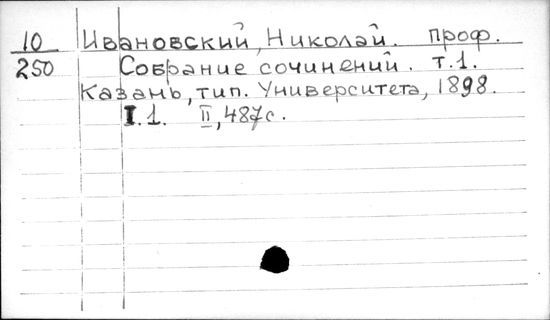 10 Ивановский, Николай. проф.
250 Собрание сочинений. т.1.
Казань, тип. Университета, 1898.
I.1. II, 487с.